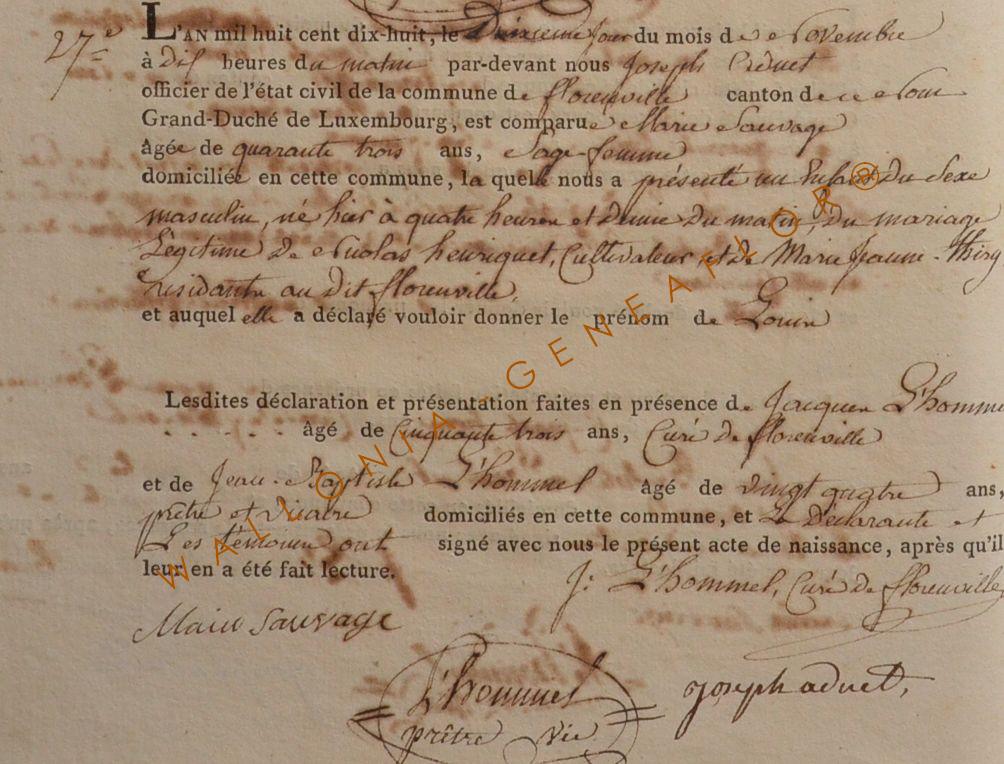 27e
L'AN mil huit cent dix-huit, le Deuxieme jour du mois de Novembre
à dix heures du matin par-devant nous Joseph Adnet
officier de l'état civil de la commune de florenville canton de
Grand-Duché de Luxembourg, est comparue Marie Sauvage
âgée de quarante trois ans, Sage-femme
domiciliée en cette commune, la quelle nous a présenté un Enfant Du Sexe
masculin, né hier à quatre heures et demie du matin, du mariage
Légitime de Nicolas henriquet, Cultivateur, et de Marie Jeanne Thiry
residants au dit florenville,
et auquel elle a déclaré vouloir donner le prénom de Louis
Lesdites déclaration et présentation faites en présence de Jacques L'hommel
âgé de Cinquante trois ans, Curé de florenville
et de Jean-Baptiste L'hommel âgé de vingt quatre ans,
prêtre et vicaire domiciliés en cette commune, et La Déclarante et
Les témoins ont signé avec nous le présent acte de naissance, après qu'il
leur en a été fait lecture.
J: L'hommel, Curé de florenville
Marie Sauvage
L'hommel
prêtre vic
joseph adnet,
WALLONIA - GENEAFLOR®